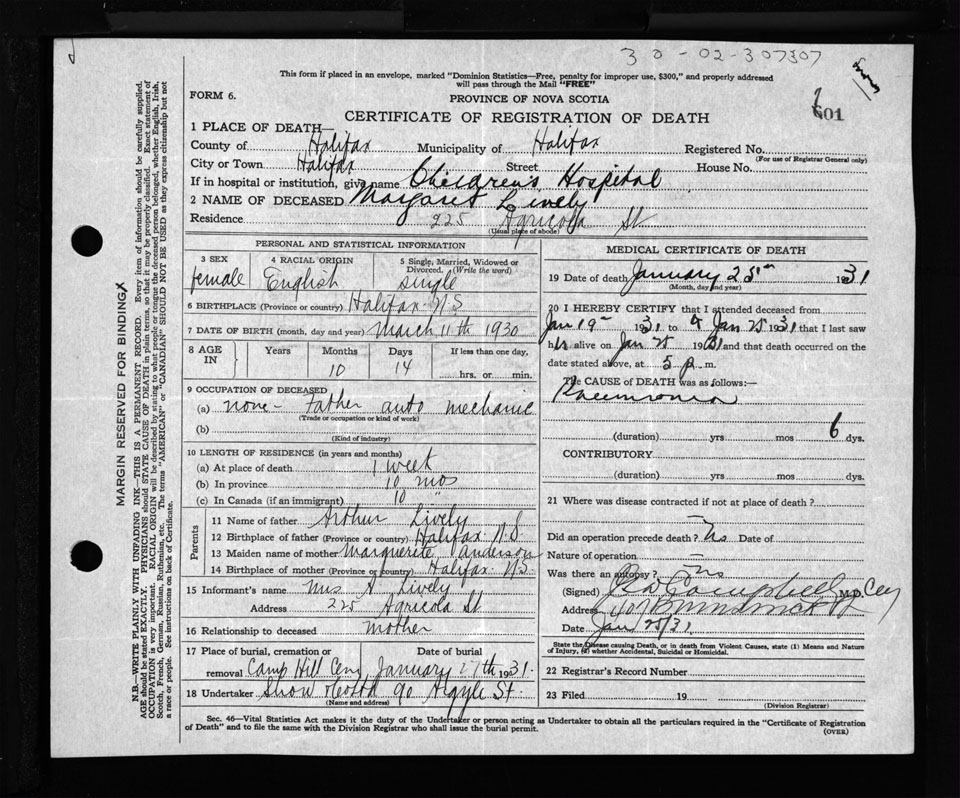 30-02-307307
This form if placed in an envelope, marked "Dominion Statistics—Free, penalty for improper use, $300," and properly addressed
will pass through the Mail "FREE"
FORM 6.
PROVINCE OF NOVA SCOTIA
601
CERTIFICATE OF REGISTRATION OF DEATH
1 PLACE OF DEATH—
County of Halifax Municipality of Halifax Registered No.
(For use of Registrar General only)
City or Town Halifax Street House No.
If in hospital or institution, give name Children's Hospital
2 NAME OF DECEASED Margaret Lively
Residence 225 Agricola St
(Usual place of abode)
PERSONAL AND STATISTICAL INFORMATION
3 SEX 4 RACIAL ORIGIN 5 Single, Married, Widowed or
Divorced. (Write the word)
female English single
6 BIRTHPLACE (Province or country) Halifax N.S
7 DATE OF BIRTH (month, day and year) March 11th 1930
8 AGE IN Years Months Days If less than one day,
10 14 hrs. or min.
9 OCCUPATION OF DECEASED
(a) none - Father auto mechanic
(Trade or occupation or kind of work)
(b)
(Kind of industry)
10 LENGTH OF RESIDENCE (in years and months)
(a) At place of death 1 week
(b) In province 10 mos
(c) In Canada (if an immigrant) 10 "
Parents
11 Name of father Arthur Lively
12 Birthplace of father (Province or country) Halifax N.S.
13 Maiden name of mother Marguerite Anderson
14 Birthplace of mother (Province or country) Halifax N.S
15 Informant's name Mrs A Lively
Address 225 Agricola St
16 Relationship to deceased mother
17 Place of burial, cremation or removal Date of burial
Camp Hill Cem January 27th 1931.
18 Undertaker Snow &Co Ltd 90 Argyle St.
(Name and address)
MEDICAL CERTIFICATE OF DEATH
19 Date of death January 25th 1931
(Month, day and year)
20 I HEREBY CERTIFY that I attended deceased from
Jan 19th 1931 to Jan 25 1931 that I last saw
her alive on Jan 25 1931 and that death occurred on the
date stated above, at 5 p.m.
The CAUSE of DEATH was as follows:—
Pneumonia
(duration) yrs mos 6 dys.
CONTRIBUTORY
(duration) yrs. mos dys.
21 Where was disease contracted if not at place of death?
Did an operation precede death? No Date of
Nature of operation
Was there an autopsy? no
(Signed) Campbell M.D.
Address
Date Jan 25/31
State the Disease causing Death, or in death from Violent Causes, state (1) Means and Nature
of Injury, (2) whether Accidental, Suicidal or Homicidal.
22 Registrar's Record Number
23 Filed 19
(Division Registrar)
Sec. 46—Vital Statistics Act makes it the duty of the Undertaker or person acting as Undertaker to obtain all the particulars required in the "Certificate of Registration
of Death" and to file the same with the Division Registrar who shall issue the burial permit.
(OVER)
MARGIN RESERVED FOR BINDING
N.B.—WRITE PLAINLY WITH UNFADING INK—THIS IS A PERMANENT RECORD. Every item of information should be carefully supplied.
AGE should be stated EXACTLY. PHYSICIANS should STATE CAUSE OF DEATH in plain terms, so that it may be properly classified. Exact statement of
OCCUPATION is very important. RACIAL ORIGIN will be described by stating to what people or tongue the deceased person belonged, whether English, Irish,
Scotch, French, German, Russian, Ruthenian, etc. The terms "AMERICAN" or "CANADIAN" SHOULD NOT BE USED as they express citizenship but not
a race or people. See instructions on back of Certificate.